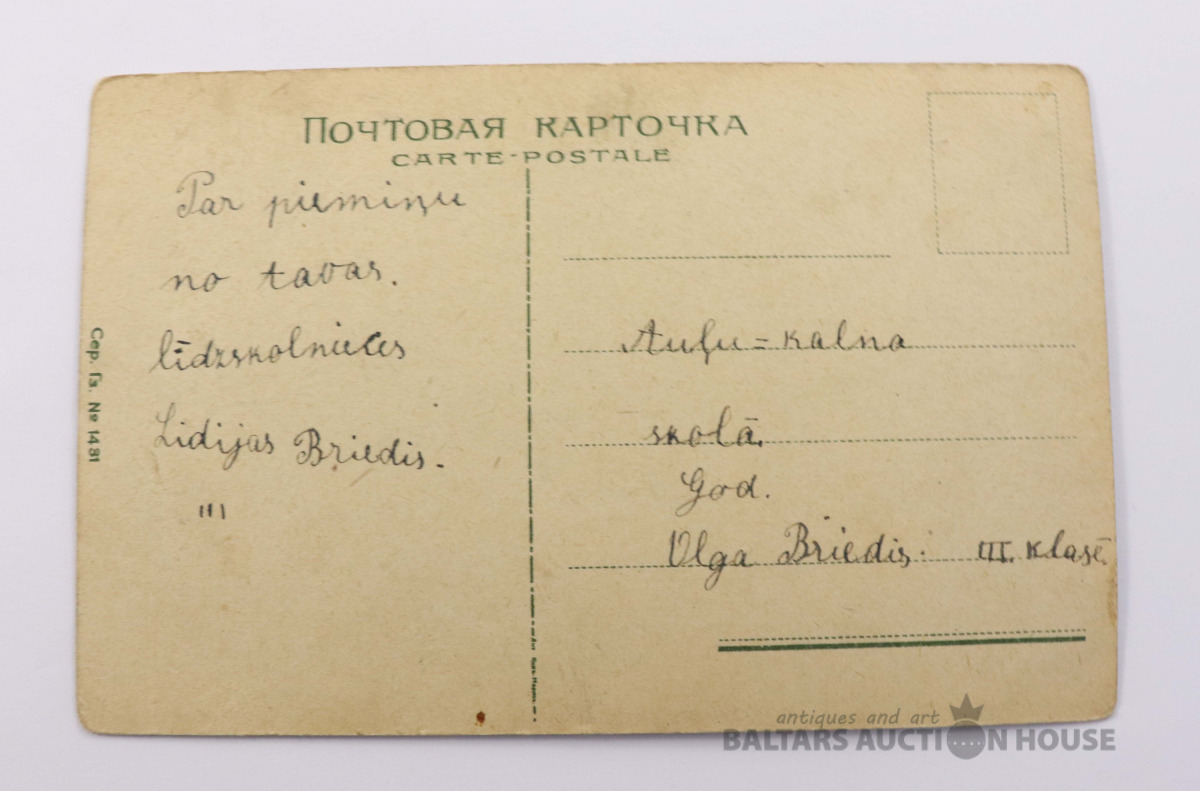 ПОЧТОВАЯ КАРТОЧКА
CARTE-POSTALE
Par piemiņu
no tavas.
līdzskolnieces
Lidijas Briedis.
III
Сер. Гз. № 1481
Auļu=kalna
skolā.
God.
Olga Briedis. III. klasē.
antiques and art
BALTARS AUCTION HOUSE